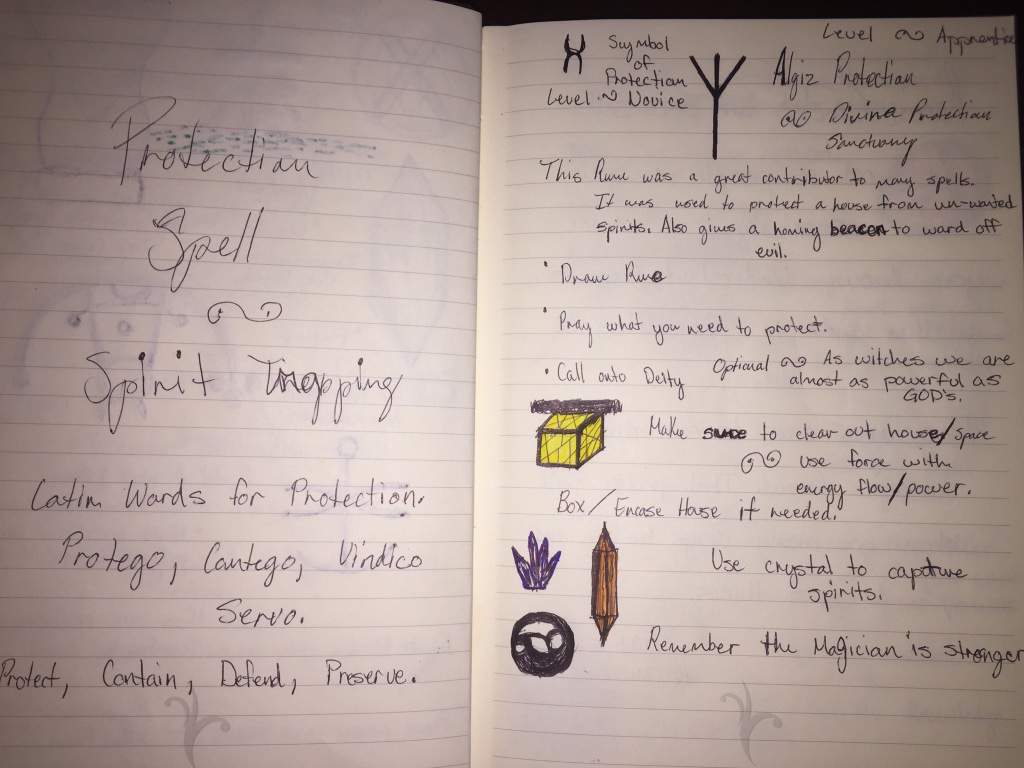 Protection
Spell
Spirit Trapping
Latin Words for Protection.
Protego, Contego, Vindico
Servo.
Protect, Contain, Defend, Preserve.
Symbol
of
Protection
Level ~ Novice
Level ~ Apprentice
Algiz Protection
~ Divine Protection
Sanctuary
This Rune was a great contributor to many spells.
It was used to protect a house from un-wanted
spirits. Also gives a homing beacon to ward off
evil.
• Draw Rune
• Pray what you need to protect.
• Call onto Deity
Optional ~ As witches we are
almost as powerful as
GOD's.
Make to clear out house/space
~ use force with
energy flow/power.
Box/Encase House if needed.
Use crystal to capture
spirits.
Remember the Magician is stronger